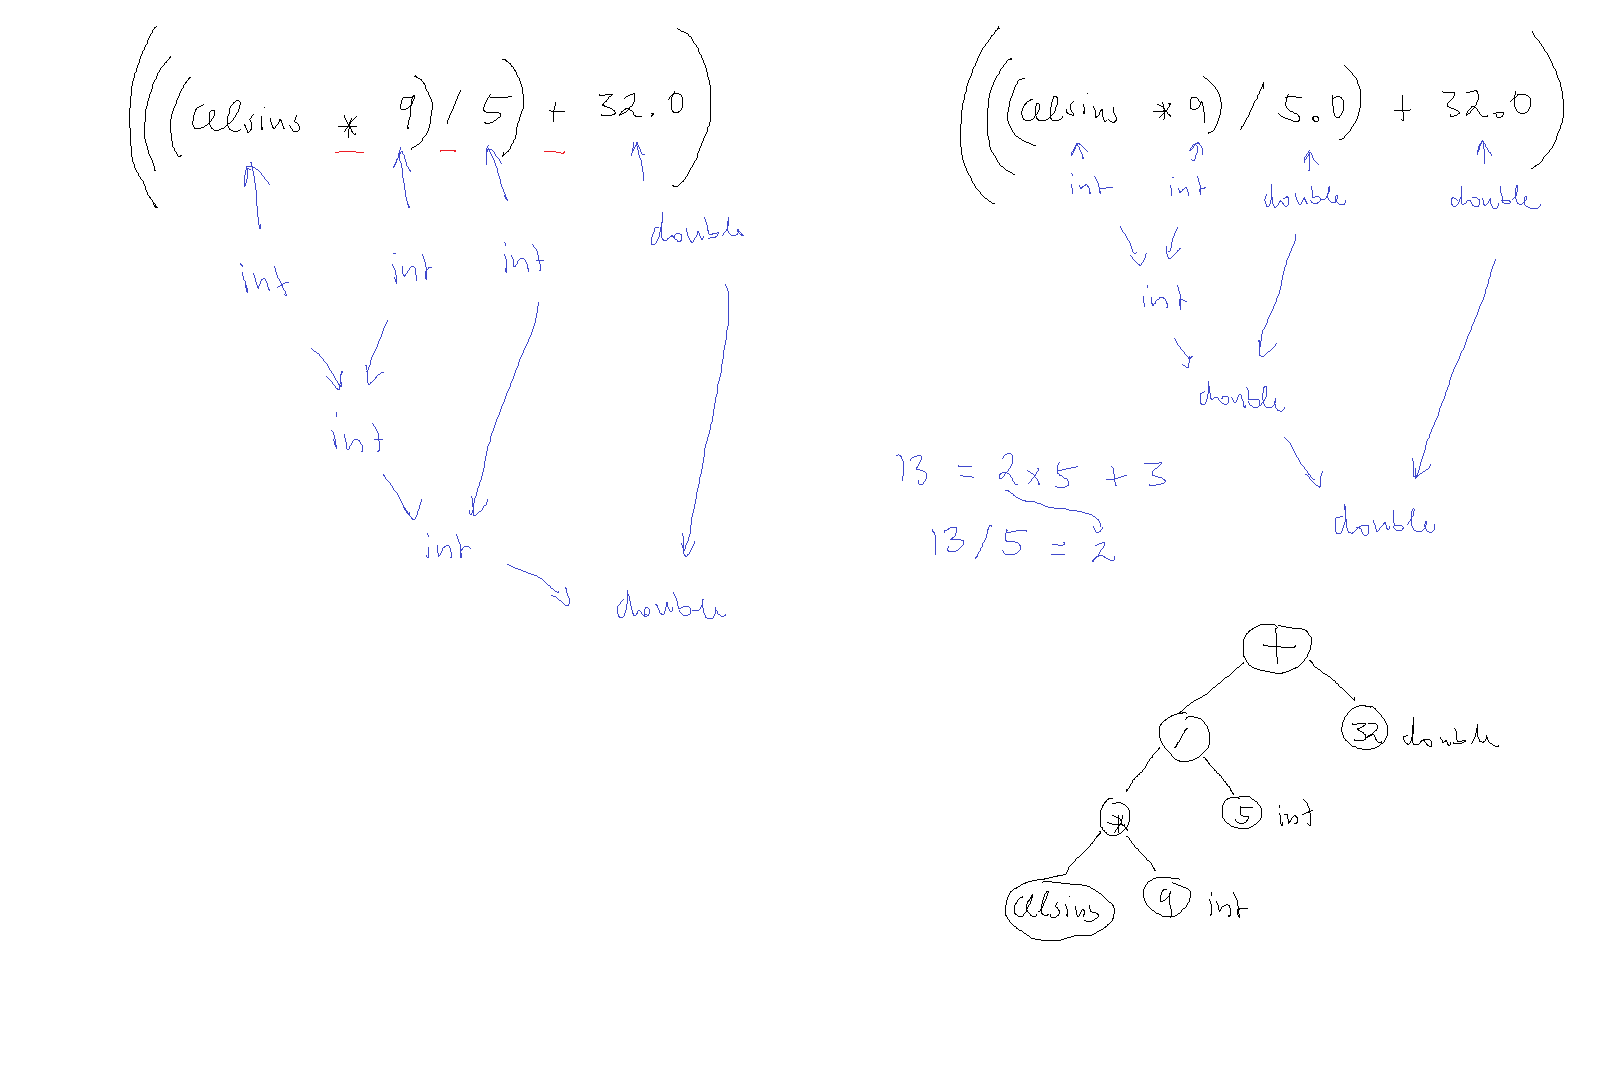 (((celsius * 9) / 5) + 32.0)
int int int double
int
int
double
(((celsius * 9) / 5.0) + 32.0)
int int double double
int
double
double
13 = 2 x 5 + 3
13 / 5 = 2
+
/ 32 double
* 5 int
celsius 9 int